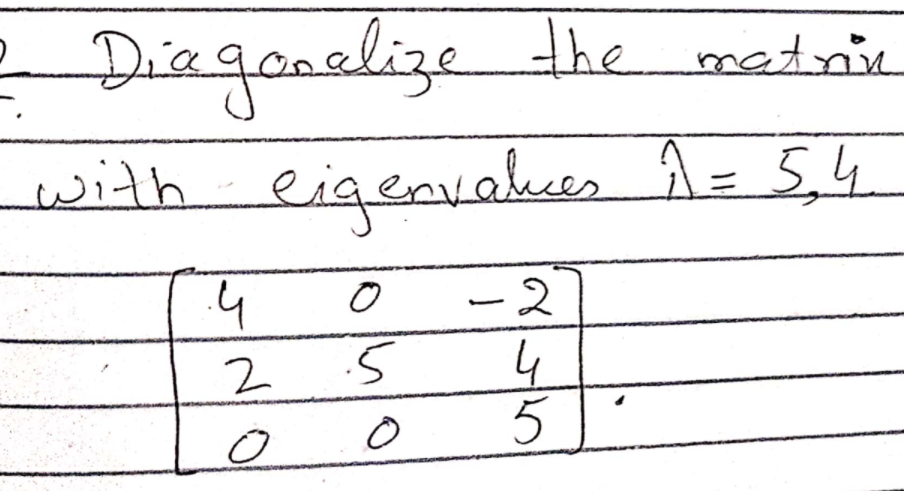 2. Diagonalize the matrix
with eigenvalues λ = 5,4
4 0 -2
2 5 4
0 0 5